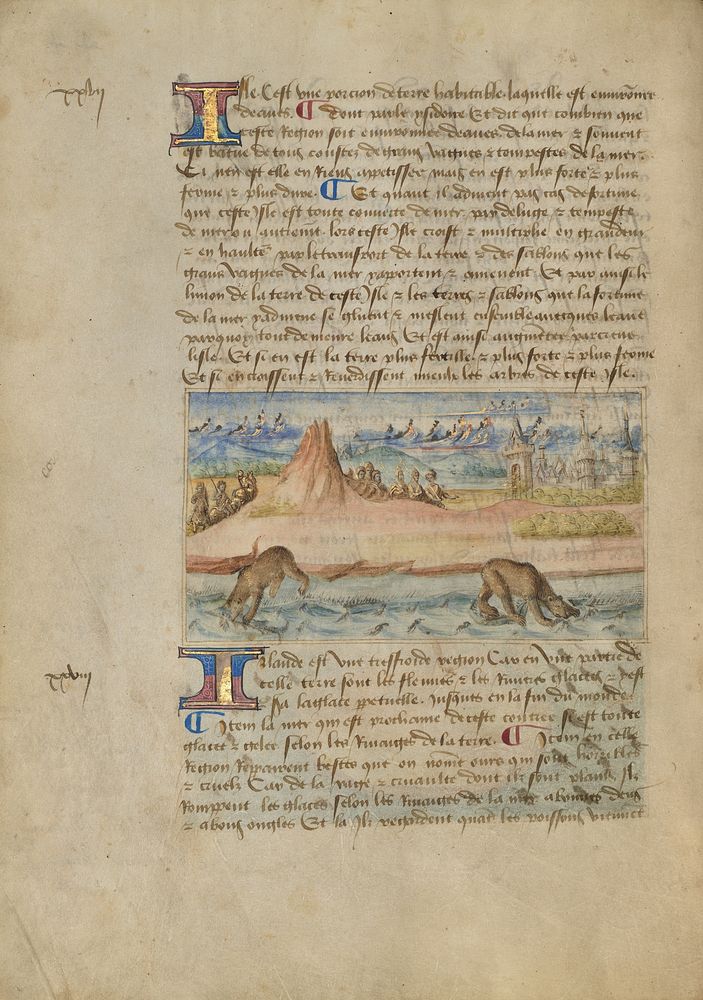 xxvii
Isle C'est une porcion de terre habitable laquelle est environnee
de eaues. Dont parle ysidore Et dit que combien que
ceste Region soit environnee deaues de la mer & souvent
est batue de tous coustez de grans vagues & tempestes de la mer.
Ce nen est elle en Riens appetissee mais en est plus forte & plus
ferme & plus dure. Et quant il advient par cas de fortune
que ceste Isle est toute couverte de mer par deluge & tempeste
de mer ou autrement. lors ceste Isle croist & multiplie en grandeur
& en haulte par le transport de la terre & des sablons que les
grans vagues de la mer y apportent & amenent. Et par ainsi le
limon de la terre de ceste Isle & les terres & sablons que la fortune
de la mer y admene se gluent & meslent ensemble avecques leaue
parquoy tout demeure leans Et est ainsi augmentee
lisle. Et si en est la terre plus fertille & plus forte & plus ferme
Et si en croissent & Reverdissent mieulx les arbres de ceste Isle.
xxviii
Irlande est une tresfroide region Car en une partie de
celle terre sont les fleuves & les Rivieres glacees & dest
la la glace perpetuelle. Jusques en la fin du monde
Item la mer qui est prochaine de ceste contree se est toute
glacee & gelee selon les Rivaiges de la terre. Item en celle
Region Reppairent bestes que on nomme ours qui sont horribles
& cruelz Car de la rage & cruaulte dont ilz sont plains Ilz
Rompent les glaces selon les Rivaiges de la mer a bonnes dens
& a bons ongles Et la Ilz regardent quant les poissons viennent